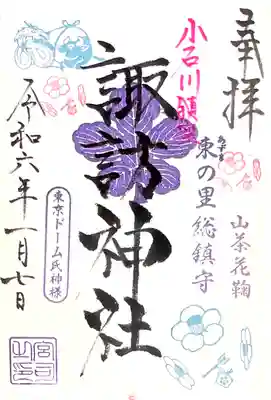 奉拝
小石川鎮座
あずま
東の里総鎮守
山茶花鞠
諏訪神社
令和六年一月七日
東京ドーム氏神様
宮司之印